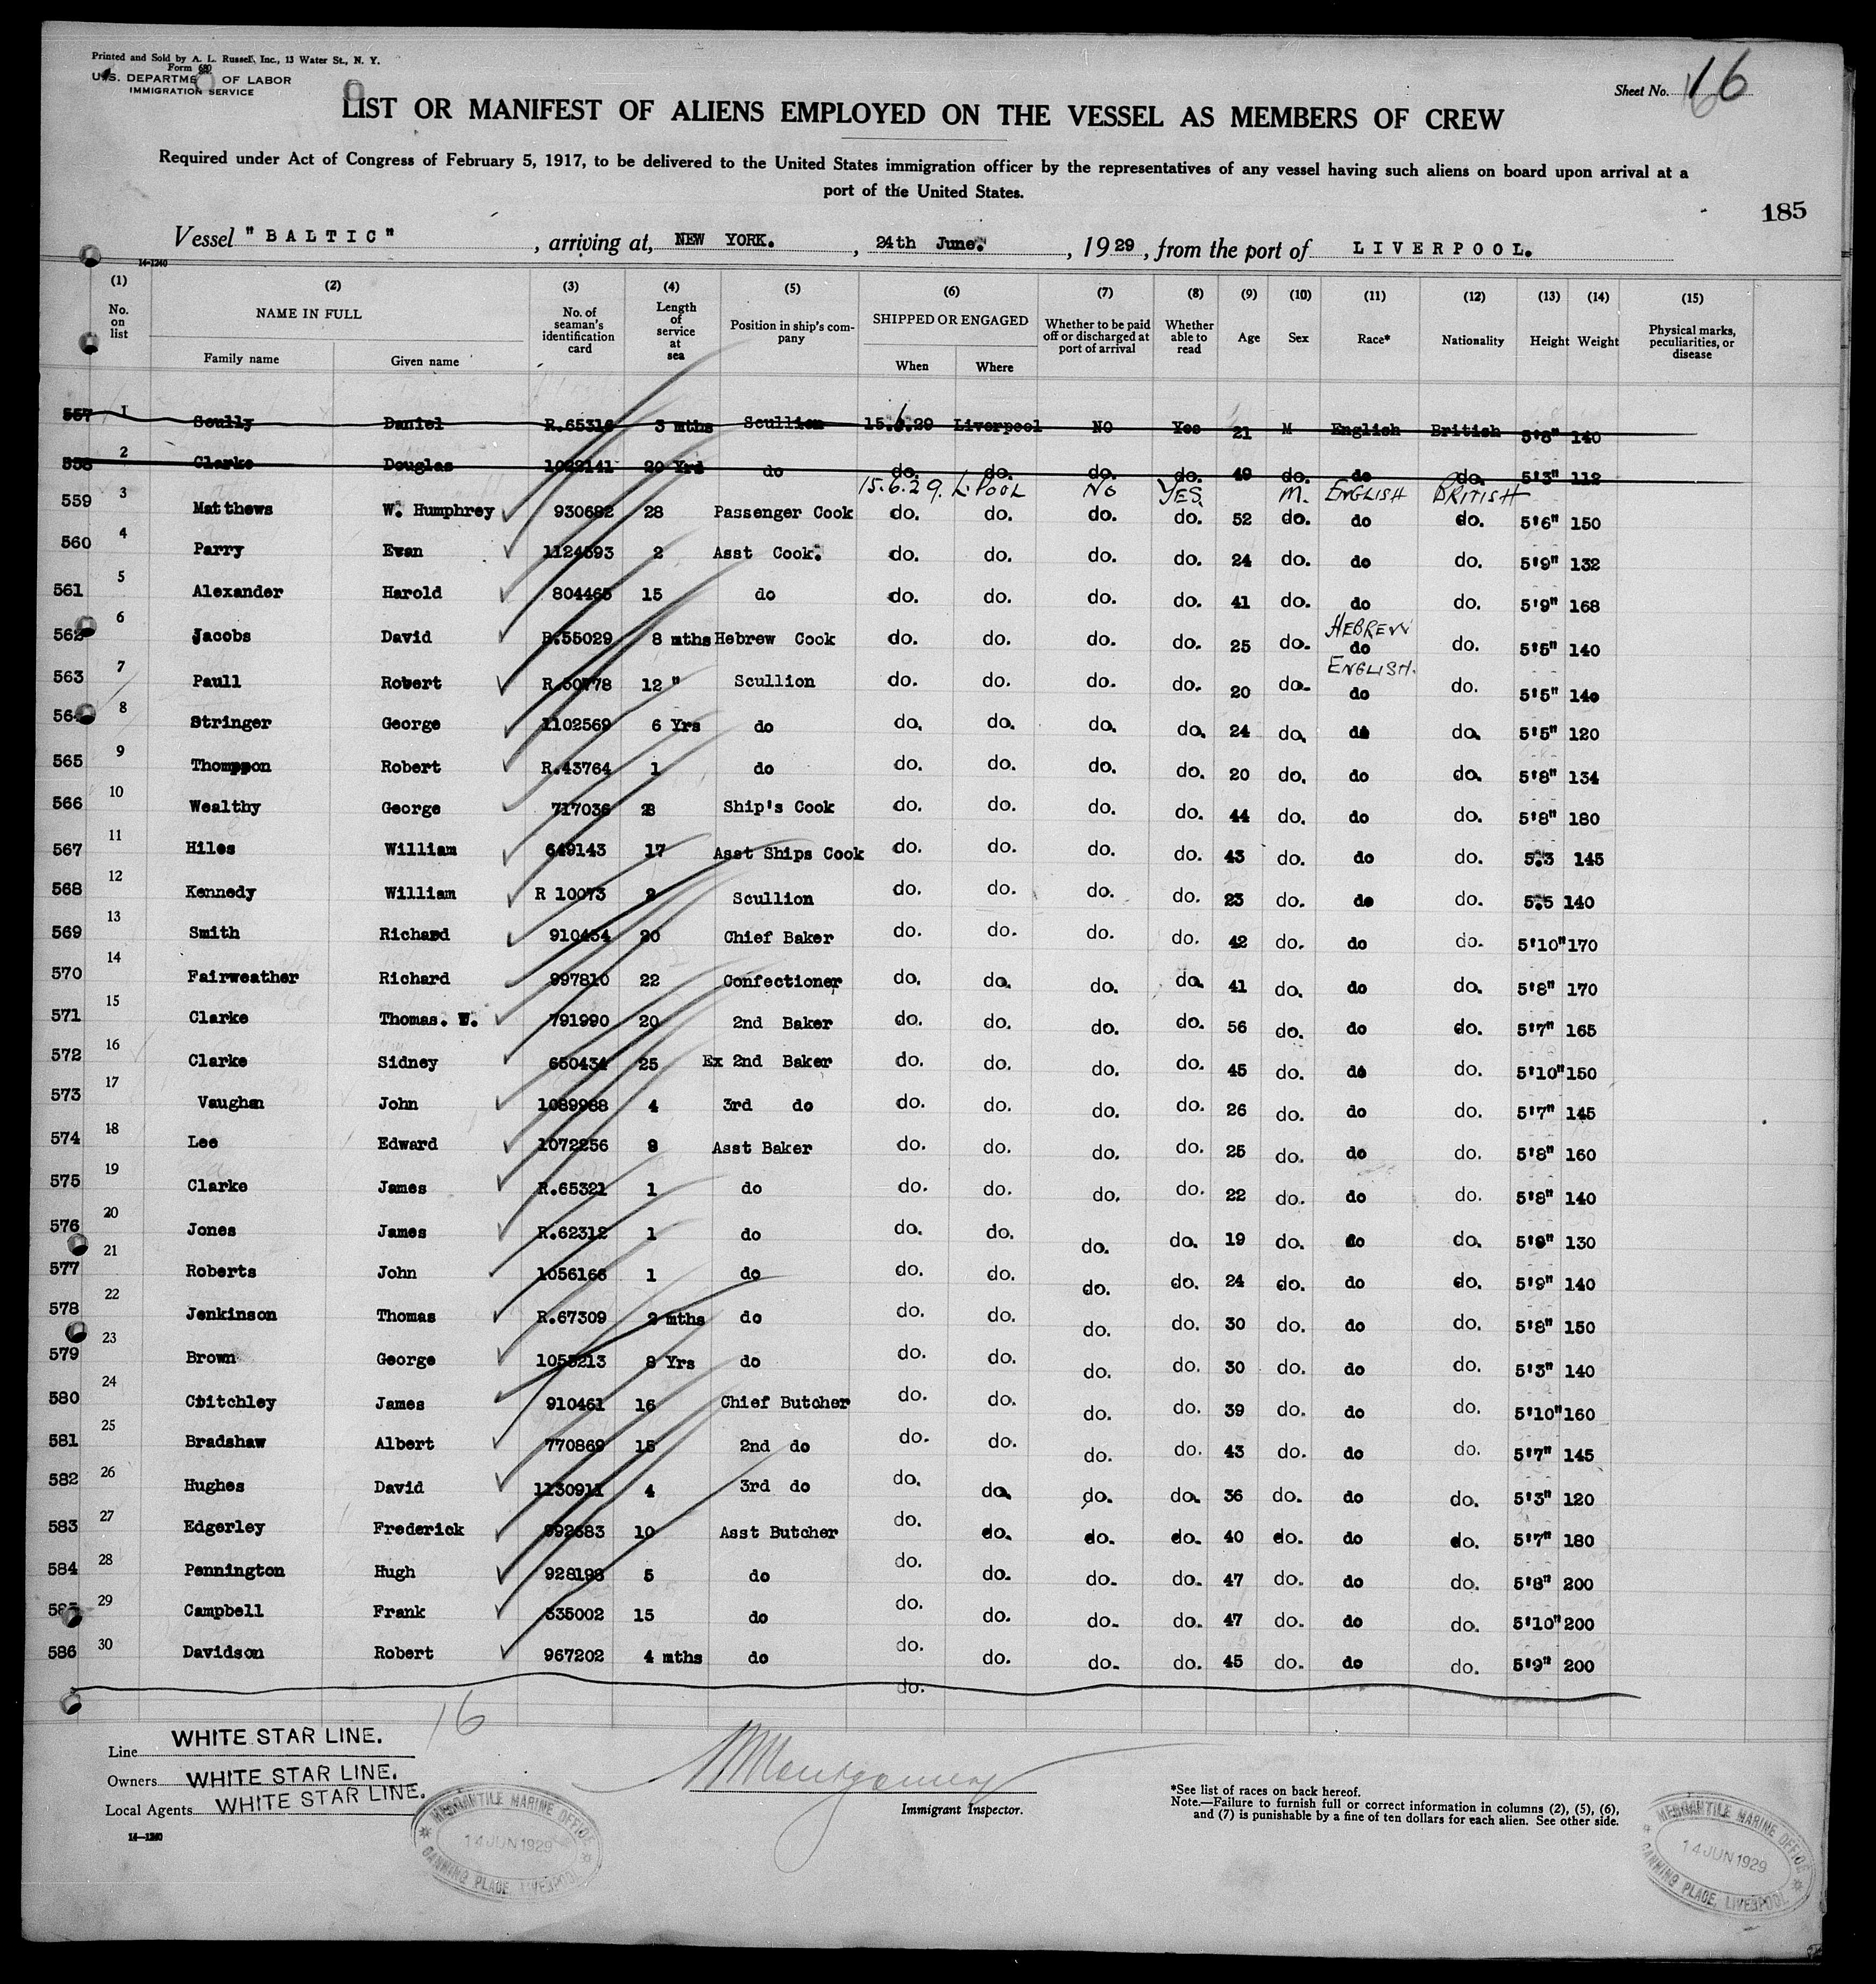 Printed and Sold by A. L. Russell, Inc., 13 Water St., N. Y.
Form 680
U.S. DEPARTMENT OF LABOR
IMMIGRATION SERVICE
Sheet No. 16
LIST OR MANIFEST OF ALIENS EMPLOYED ON THE VESSEL AS MEMBERS OF CREW
Required under Act of Congress of February 5, 1917, to be delivered to the United States immigration officer by the representatives of any vessel having such aliens on board upon arrival at a
port of the United States.
185
Vessel "BALTIC", arriving at, NEW YORK., 24th June., 1929, from the port of LIVERPOOL.
14-1240
(1) (2) (3) (4) (5) (6) (7) (8) (9) (10) (11) (12) (13) (14) (15)
No. on list NAME IN FULL Family name Given name No. of seaman's identification card Length of service at sea Position in ship's company SHIPPED OR ENGAGED When Where Whether to be paid off or discharged at port of arrival Whether able to read Age Sex Race* Nationality Height Weight Physical marks, peculiarities, or disease
557 1 Scully Daniel R.65316 3 mths Scullion 15.6.29 Liverpool NO Yes 21 M English British 5'8" 140
558 2 Clarke Douglas 1022141 20 Yrs do do. do. do. do. 49 do. do do. 5'3" 112
15.6.29. L.POOL NO YES. M. ENGLISH BRITISH
559 3 Matthews W. Humphrey 930682 28 Passenger Cook do. do. do. do. 52 do. do do. 5'6" 150
560 4 Parry Ewan 1124593 2 Asst Cook. do. do. do. do. 24 do. do do. 5'9" 132
561 5 Alexander Harold 804465 15 do do. do. do. do. 41 do. do do. 5'9" 168
HEBREW
562 6 Jacobs David R.55029 8 mths Hebrew Cook do. do. do. do. 25 do. do do. 5'5" 140
ENGLISH.
563 7 Paull Robert R.50778 12 " Scullion do. do. do. do. 20 do. do do. 5'5" 140
564 8 Stringer George 1102569 6 Yrs do do. do. do. do. 24 do. do do. 5'5" 120
565 9 Thomppon Robert R.43764 1 do do. do. do. do. 20 do. do do. 5'8" 134
566 10 Wealthy George 717036 28 Ship's Cook do. do. do. do. 44 do. do do. 5'8" 180
567 11 Hiles William 649143 17 Asst Ships Cook do. do. do. do. 43 do. do do. 5.3 145
568 12 Kennedy William R 10073 2 Scullion do. do. do. do. 23 do. do do. 5.5 140
569 13 Smith Richard 910454 20 Chief Baker do. do. do. do. 42 do. do do. 5'10" 170
570 14 Fairweather Richard 997810 22 Confectioner do. do. do. do. 41 do. do do. 5'8" 170
571 15 Clarke Thomas. W. 791990 20 2nd Baker do. do. do. do. 56 do. do do. 5'7" 165
572 16 Clarke Sidney 650434 25 Ex 2nd Baker do. do. do. do. 45 do. do do. 5'10" 150
573 17 Vaughan John 1089988 4 3rd do do. do. do. do. 26 do. do do. 5'7" 145
574 18 Lee Edward 1072256 8 Asst Baker do. do. do. do. 25 do. do do. 5'8" 160
575 19 Clarke James R.65321 1 do do. do. do. do. 22 do. do do. 5'8" 140
576 20 Jones James R.62312 1 do do. do. do. do. 19 do. do do. 5'9" 130
577 21 Roberts John 1056166 1 do do. do. do. do. 24 do. do do. 5'9" 140
578 22 Jenkinson Thomas R.67309 2 mths do do. do. do. do. 30 do. do do. 5'8" 150
579 23 Brown George 1053213 8 Yrs do do. do. do. do. 30 do. do do. 5'3" 140
580 24 Critchley James 910461 16 Chief Butcher do. do. do. do. 39 do. do do. 5'10" 160
581 25 Bradshaw Albert 770869 15 2nd do do. do. do. do. 43 do. do do. 5'7" 145
582 26 Hughes David 1130911 4 3rd do do. do. do. do. 36 do. do do. 5'3" 120
583 27 Edgerley Frederick 992683 10 Asst Butcher do. do. do. do. 40 do. do do. 5'7" 180
584 28 Pennington Hugh 928198 5 do do. do. do. do. 47 do. do do. 5'8" 200
585 29 Campbell Frank 535002 15 do do. do. do. do. 47 do. do do. 5'10" 200
586 30 Davidson Robert 967202 4 mths do do. do. do. do. 45 do. do do. 5'9" 200
do.
16
Line WHITE STAR LINE.
Owners WHITE STAR LINE.
Local Agents WHITE STAR LINE.
14-1240
Montgomery
Immigrant Inspector.
*See list of races on back hereof.
Note.—Failure to furnish full or correct information in columns (2), (5), (6),
and (7) is punishable by a fine of ten dollars for each alien. See other side.
MERCANTILE MARINE OFFICE
14 JUN 1929
CANNING PLACE, LIVERPOOL
MERCANTILE MARINE OFFICE
14 JUN 1929
CANNING PLACE, LIVERPOOL